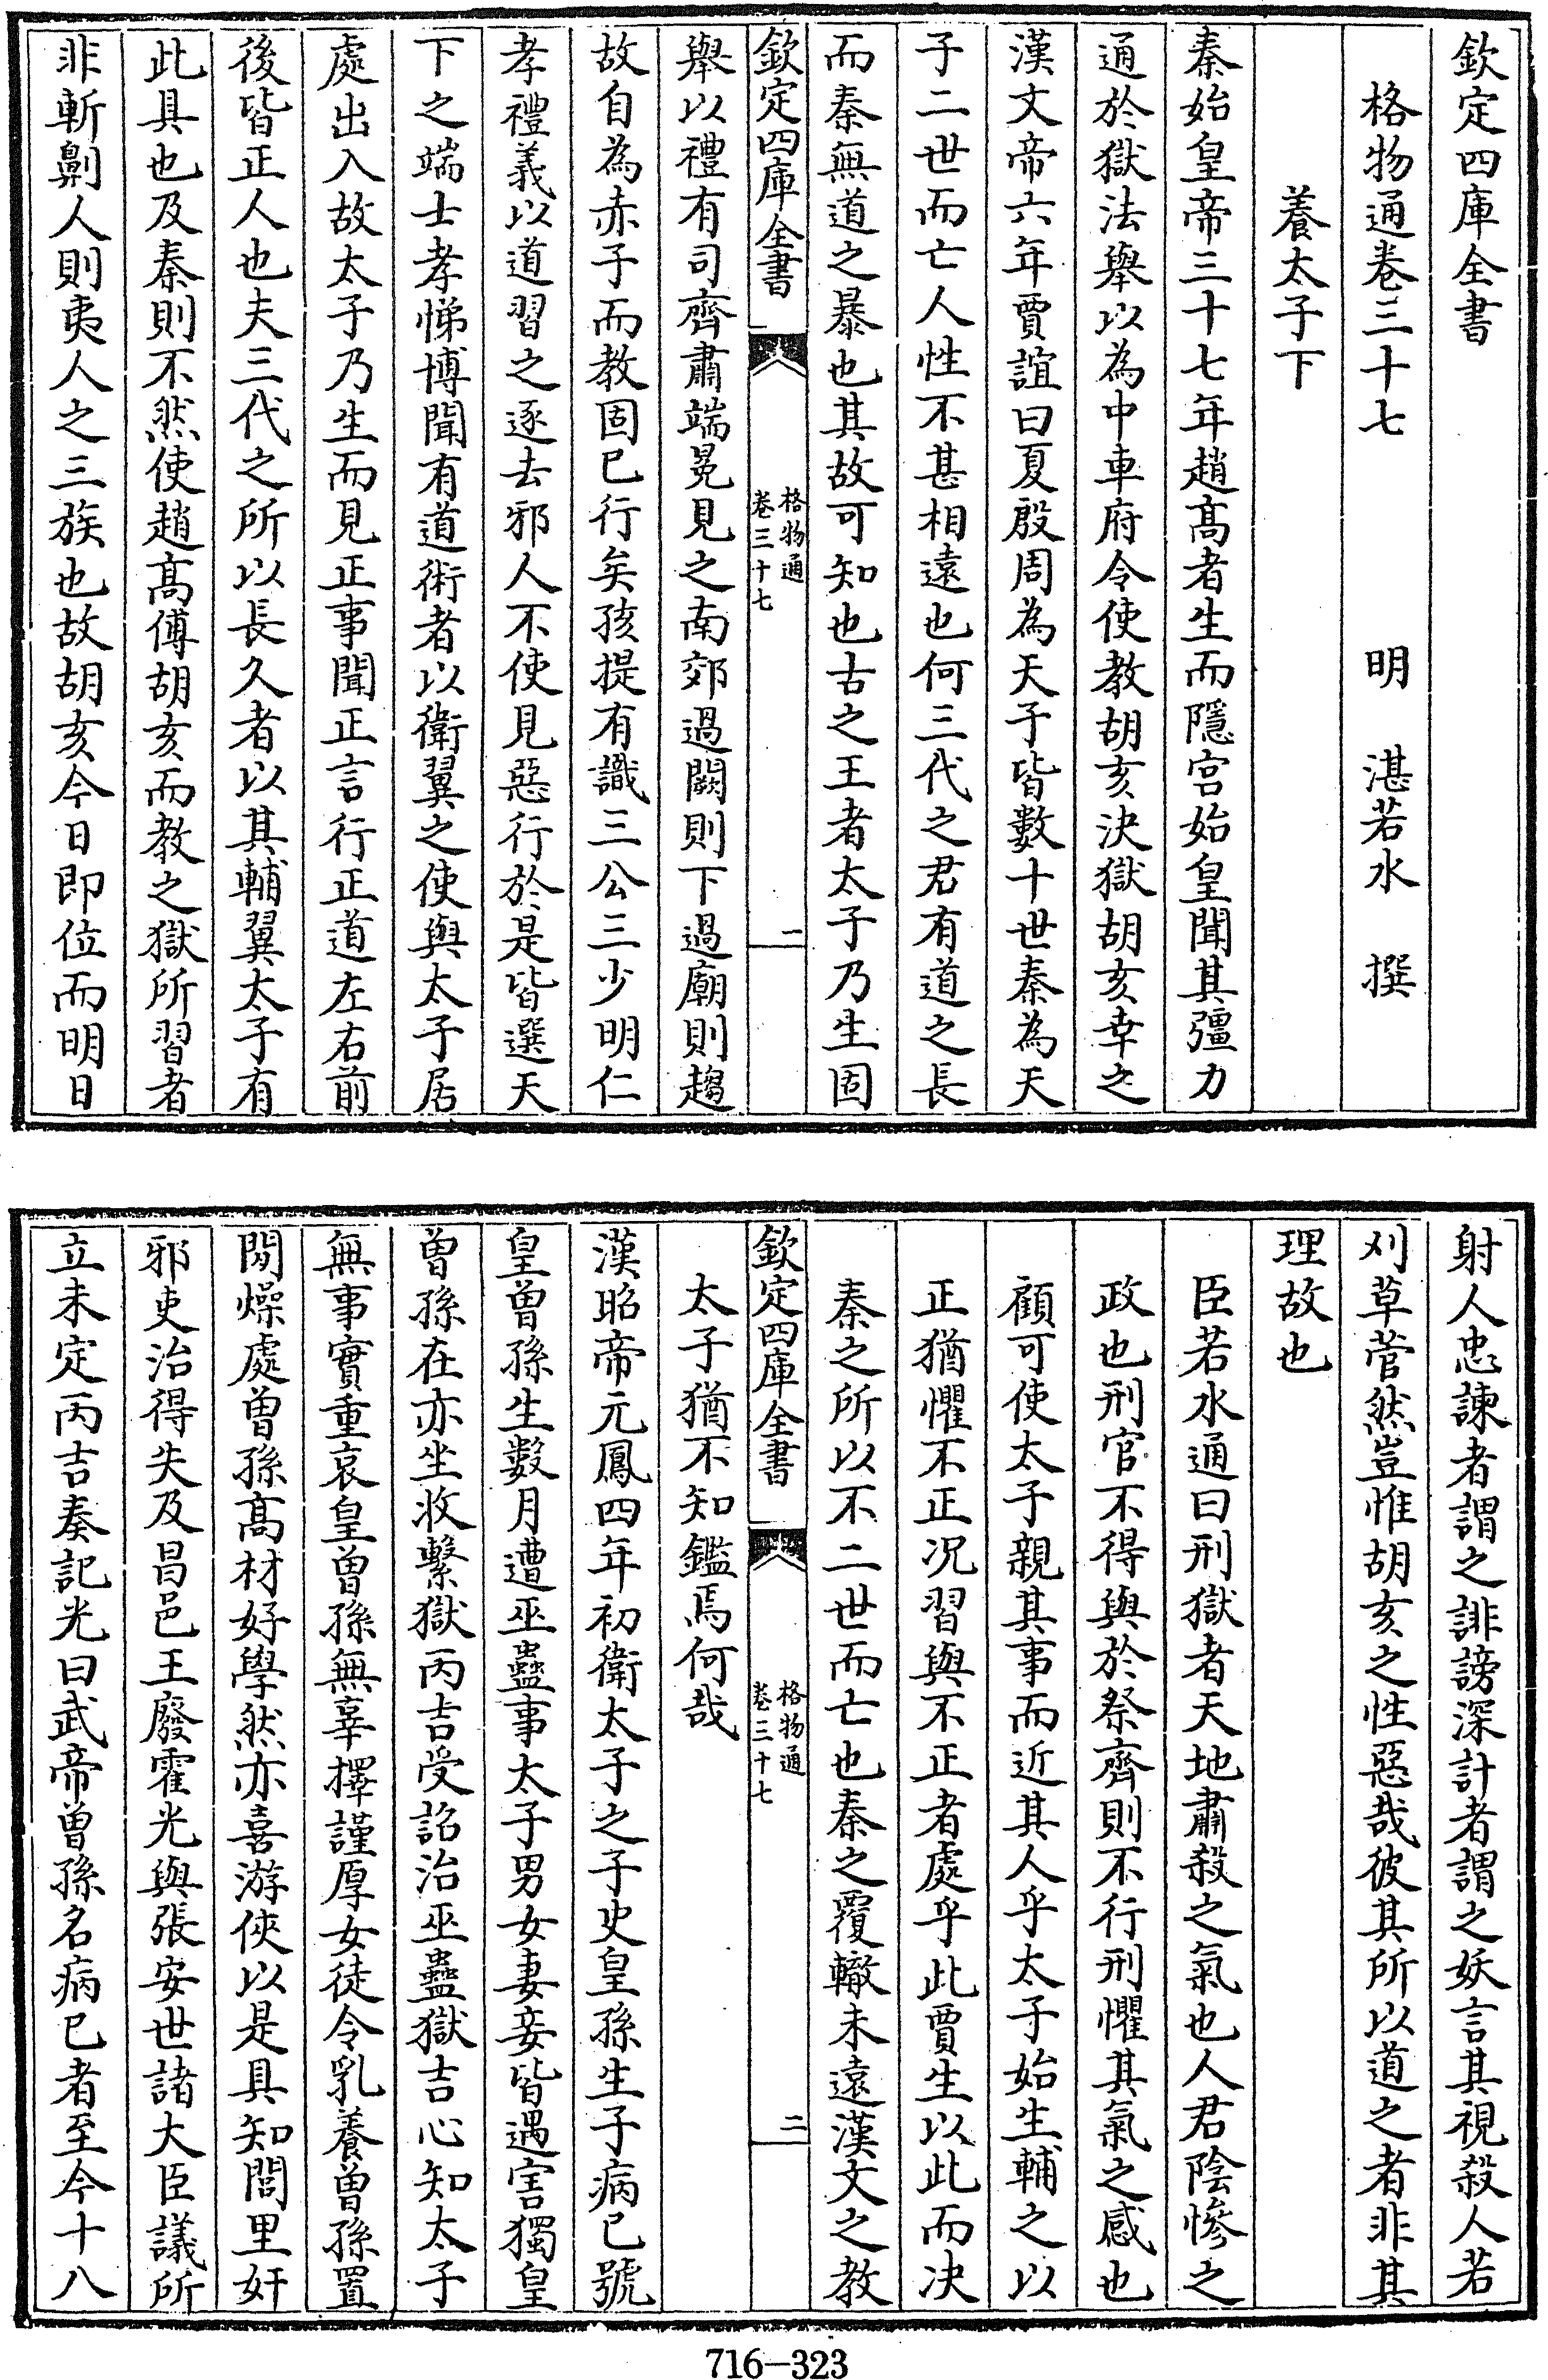 欽定四庫全書
格物通卷三十七　明　湛若水　撰
養太子下
秦始皇帝三十七年趙髙者生而隱宫始皇聞其彊力
通於獄法舉以為中車府令使教胡亥决獄胡亥幸之
漢文帝六年賈誼曰夏殷周為天子皆數十世秦為天
子二世而亡人性不甚相遠也何三代之君有道之長
而秦無道之暴也其故可知也古之王者太子乃生固
欽定四庫全書
格物通
卷三十七
一
舉以禮有司齊肅端冕見之南郊過闕則下過廟則趨
故自為赤子而教固已行矣孩提有識三公三少明仁
孝禮義以道習之逐去邪人不使見惡行於是皆選天
下之端士孝悌博聞有道術者以衛翼之使與太子居
處出入故太子乃生而見正事聞正言行正道左右前
後皆正人也夫三代之所以長久者以其輔翼太子有
此具也及秦則不然使趙髙傅胡亥而教之獄所習者
非斬劓人則夷人之三族也故胡亥今日即位而明日
射人忠諫者謂之誹謗深計者謂之妖言其視殺人若
刈草菅然豈惟胡亥之性惡哉彼其所以道之者非其
理故也
臣若水通曰刑獄者天地肅殺之氣也人君陰慘之
政也刑官不得與於祭齊則不行刑懼其氣之感也
顧可使太子親其事而近其人乎太子始生輔之以
正猶懼不正况習與不正者處乎此賈生以此而决
秦之所以不二世而亡也秦之覆轍未遠漢文之教
欽定四庫全書
格物通
卷三十七
二
太子猶不知鑑焉何哉
漢昭帝元鳳四年初衛太子之子史皇孫生子病已號
皇曾孫生數月遭巫蠱事太子男女妻妾皆遇害獨皇
曾孫在亦坐收繫獄丙吉受詔治巫蠱獄吉心知太子
無事實重哀皇曾孫無辜擇謹厚女徒令乳養曾孫置
閒燥處曾孫髙材好學然亦喜游俠以是具知閭里奸
邪吏治得失及昌邑王廢霍光與張安世諸大臣議所
立未定丙吉奏記光曰武帝曾孫名病已者至今十八
716-323